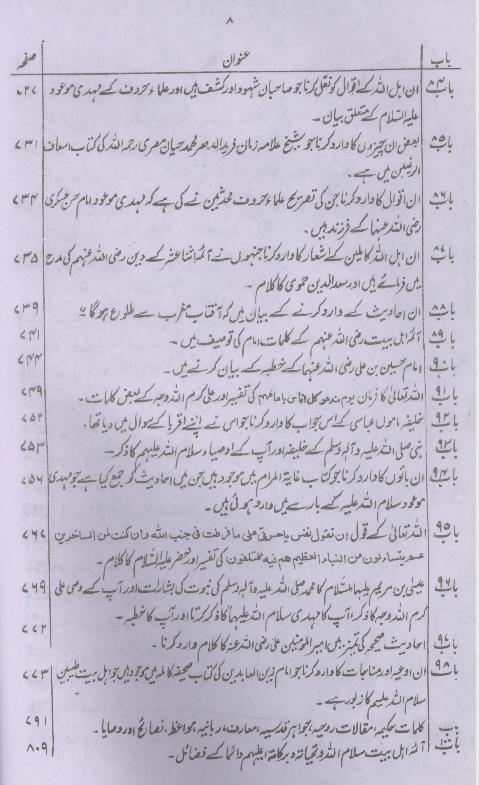 ۸
باب عنوان صفحہ
باب ۸۴ ان اہل اللہ کے اقوال کو نقل کرنا جو صاحبان شہود اور کشف ہیں اور علماء حروف کے مہدی موعود ۷۲۷
علیہ السلام کے متعلق بیان۔
باب ۸۵ بعض ان چیزوں کا وارد کرنا جو شیخ علامہ زمان فرید الدہر محمد صبان مصری رحمہ اللہ کی کتاب اسعاف ۷۳۱
الراغبین میں ہے۔
باب ۸۶ ان اقوال کا وارد کرنا جن کی تصریح علماء حروف محدثین نے کی ہے کہ مہدی موعود امام حسن عسکری ۷۳۴
رضی اللہ عنہما کے فرزند ہیں۔
باب ۸۷ ان اہل اللہ کاملین کے اشعار کا وارد کرنا جنہوں نے آئمہ اثنا عشر کے دین رضی اللہ عنہم کی مدح ۷۳۵
میں فرمائے ہیں اور سعد الدین حموی کا کلام۔
باب ۸۸ ان احادیث کے وارد کرنے کے بیان میں کہ آفتاب مغرب سے طلوع ہوگا ۷۳۹
باب ۸۹ آئمہ اہل بیت رضی اللہ عنہم کے کلمات امام کی توصیف میں۔ ۷۴۱
باب ۹۰ امام حسین بن علی رضی اللہ عنہما کے خطبہ کے بیان کرنے میں۔ ۷۴۴
باب ۹۱ اللہ تعالیٰ کا فرمان یوم ندعو کل اناس بامامہم کی تفسیر اور علی کرم اللہ وجہہ کے بعض کلمات۔ ۷۴۹
باب ۹۲ خلیفہ مامون عباسی کے اس جواب کا وارد کرنا جو اس نے اپنے اقربا کے سوال میں دیا تھا۔ ۷۵۲
باب ۹۳ نبی صلی اللہ علیہ وآلہ وسلم کے خلیفہ اور آپ کے اوصیاء سلام اللہ علیہم کا ذکر۔ ۷۵۳
باب ۹۴ ان باتوں کا وارد کرنا جو کتاب غایۃ المرام میں موجود ہیں جن میں احادیث کو جمع کیا ہے جو مہدی ۷۵۶
موعود سلام اللہ علیہ کے بارے میں وارد ہوئی ہیں۔
باب ۹۵ اللہ تعالیٰ کے قول ان تقول نفس یاحسرتی علی ما فرطت فی جنب اللہ وان کنت لمن الساخرین ۷۶۷
عم یتساءلون عن النباء العظیم ھم فیہ مختلفون کی تفسیر اور خضر علیہ السلام کا کلام۔
باب ۹۶ عیسیٰ بن مریم علیہما السلام کا محمد صلی اللہ علیہ وآلہ وسلم کی نبوت کی بشارات اور آپ کے وصی علی ۷۶۹
کرم اللہ وجہہ کا ذکر، آپ کا مہدی سلام اللہ علیہما کا ذکر کرنا اور آپ کا خطبہ۔
باب ۹۷ احادیث صحیحہ کی تمیز میں امیر المومنین علی رضی اللہ عنہ کا کلام وارد کرنا۔ ۷۷۲
باب ۹۸ ان ادعیہ اور مناجات کا وارد کرنا جو امام زین العابدین کی کتاب صحیفہ کاملہ میں موجود ہیں جو اہل بیت طیبین ۷۷۳
سلام اللہ علیہم کا زبور ہے۔
باب کلمات حکیمہ، مقالات روحیہ، جواہر قدسیہ، معارف ربانیہ، مواعظ، نصائح اور وصایا۔ ۷۹۱
باب ۱۰۰ آئمہ اہل بیت سلام اللہ وتحیاتہ وبرکاتہ علیہم دائما کے فضائل۔ ۸۰۹